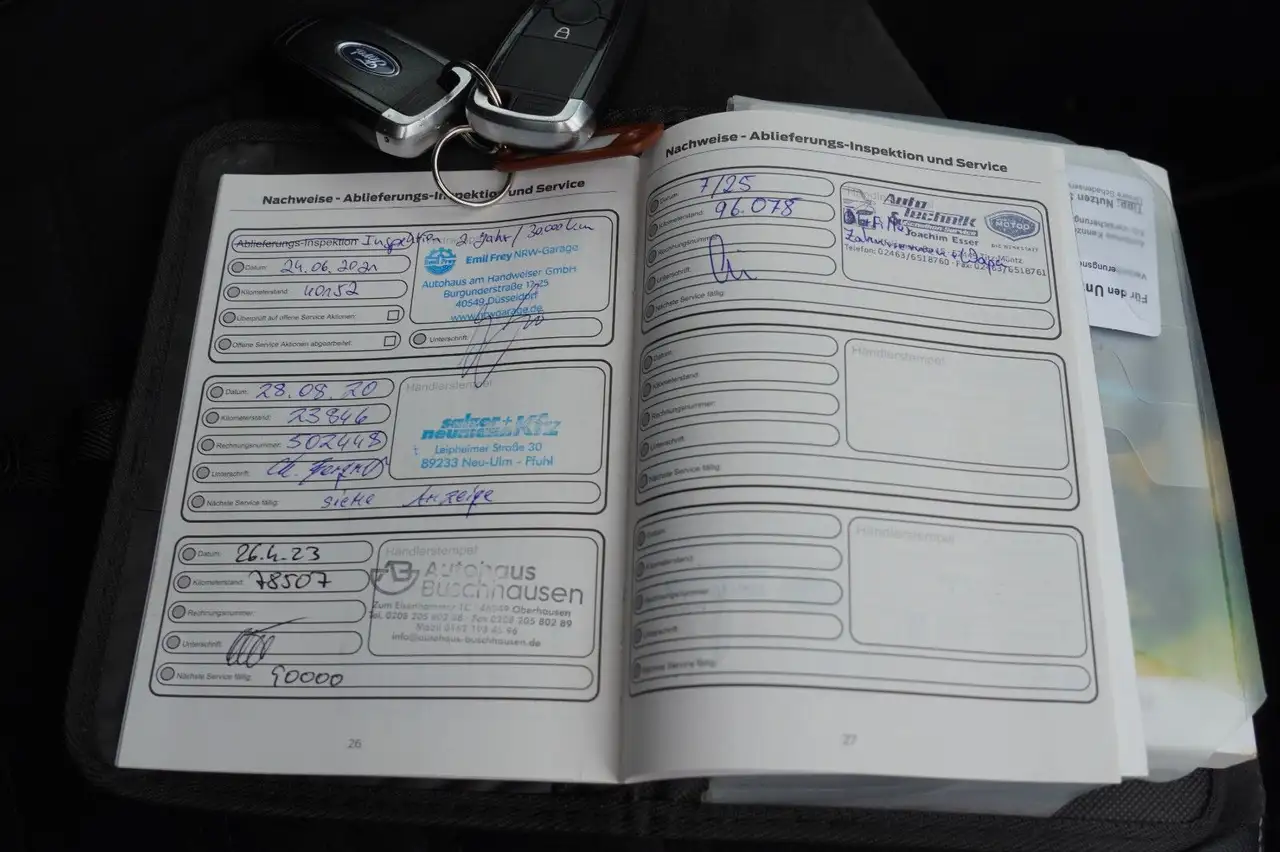 Ford
Nachweise - Ablieferungs-Inspektion und Service
Ablieferungs-Inspektion Inspektion 2 Jahr/30000km
Datum: 24.06.2021
Kilometerstand: 40152
Überprüft auf offene Service Aktionen:
Offene Service Aktionen abgearbeitet:
Emil Frey NRW-Garage
Autohaus am Handweiser GmbH
Burgunderstraße
40549 Düsseldorf
www.nrwgarage.de
Unterschrift:
Datum: 28.08.20
Kilometerstand: 23846
Rechnungsnummer: 502448
Unterschrift:
Nächste Service fällig: siehe Anzeige
Händlerstempel
Kfz
Leipheimer Straße 30
89233 Neu-Ulm - Pfuhl
Datum: 26.4.23
Kilometerstand: 78507
Rechnungsnummer:
Unterschrift:
Nächste Service fällig: 90000
Händlerstempel
AB Autohaus
Buschhausen
Oberhausen
info@autohaus-buschhausen.de
26
Nachweise - Ablieferungs-Inspektion und Service
Datum: 7/25
Kilometerstand: 96.078
Rechnungsnummer:
Unterschrift:
Nächste Service fällig:
Auto
& Technik
Joachim Esser
Telefon: 02463/6518760 · Fax: 02463/6518761
MOTOO
Datum:
Kilometerstand:
Rechnungsnummer:
Unterschrift:
Nächste Service fällig:
Händlerstempel
Datum:
Kilometerstand:
Rechnungsnummer:
Unterschrift:
Nächste Service fällig:
Händlerstempel
27
Für den